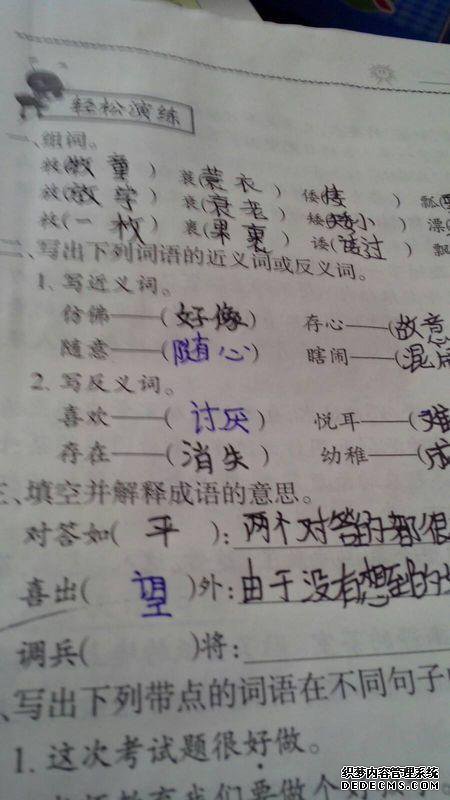 轻松演练
一、组词。
牧(牧童) 蓑(蓑衣) 倭(倭 ) 瓢(
放(放学) 衰(衰老) 矮(矮小) 漂(
枚(一枚) 裹(果裹) 诿( 过) 飘
二、写出下列词语的近义词或反义词。
1. 写近义词。
仿佛——(好像) 存心——(故意
随意——(随心) 瞎闹——(混闹
2. 写反义词。
喜欢——(讨厌) 悦耳——(难
存在——(消失) 幼稚——(成
三、填空并解释成语的意思。
对答如( 平 ):两个对答的都很
喜出( 望 )外:由于没有想到的
调兵( )将:
、写出下列带点的词语在不同句子
1. 这次考试题很好做。
我们要做个
织梦内容管理系统
DEDECMS.COM